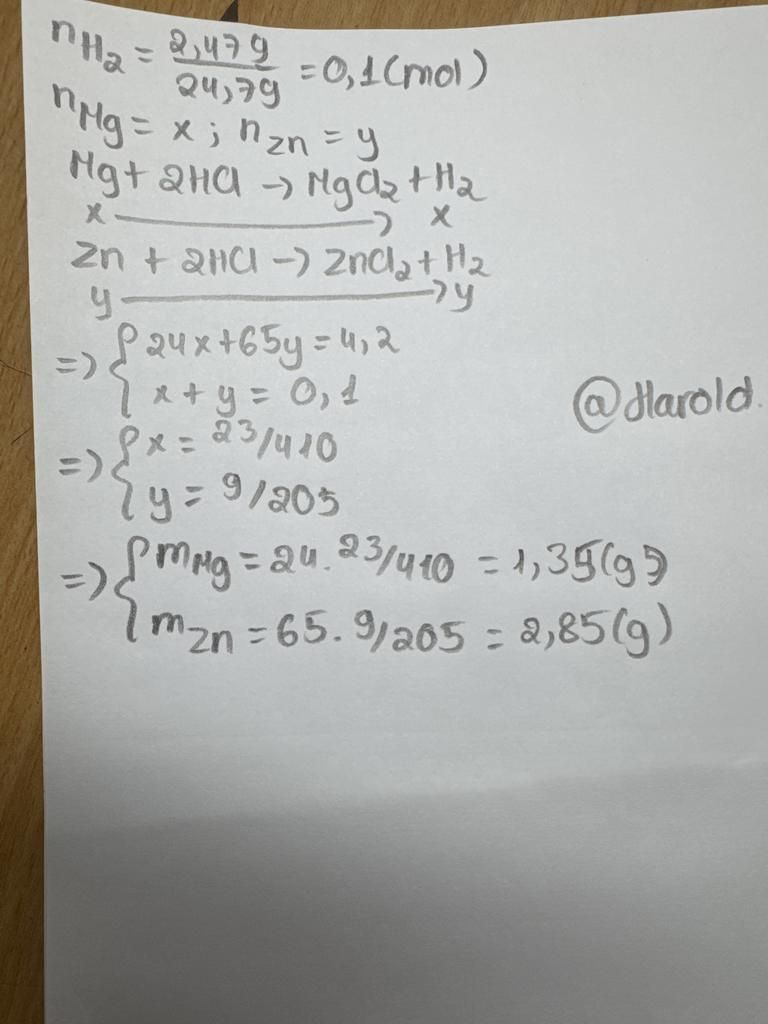 nH₂ = 2,479/24,79 = 0,1(mol)
nMg = x ; nZn = y
Mg + 2HCl -> MgCl₂ + H₂
x ———> x
Zn + 2HCl -> ZnCl₂ + H₂
y ———> y
=> { 24x + 65y = 4,2
x + y = 0,1
@Harold.
=> { x = 23/410
y = 9/205
=> { mMg = 24 . 23/410 = 1,35(g)
mZn = 65 . 9/205 = 2,85(g)